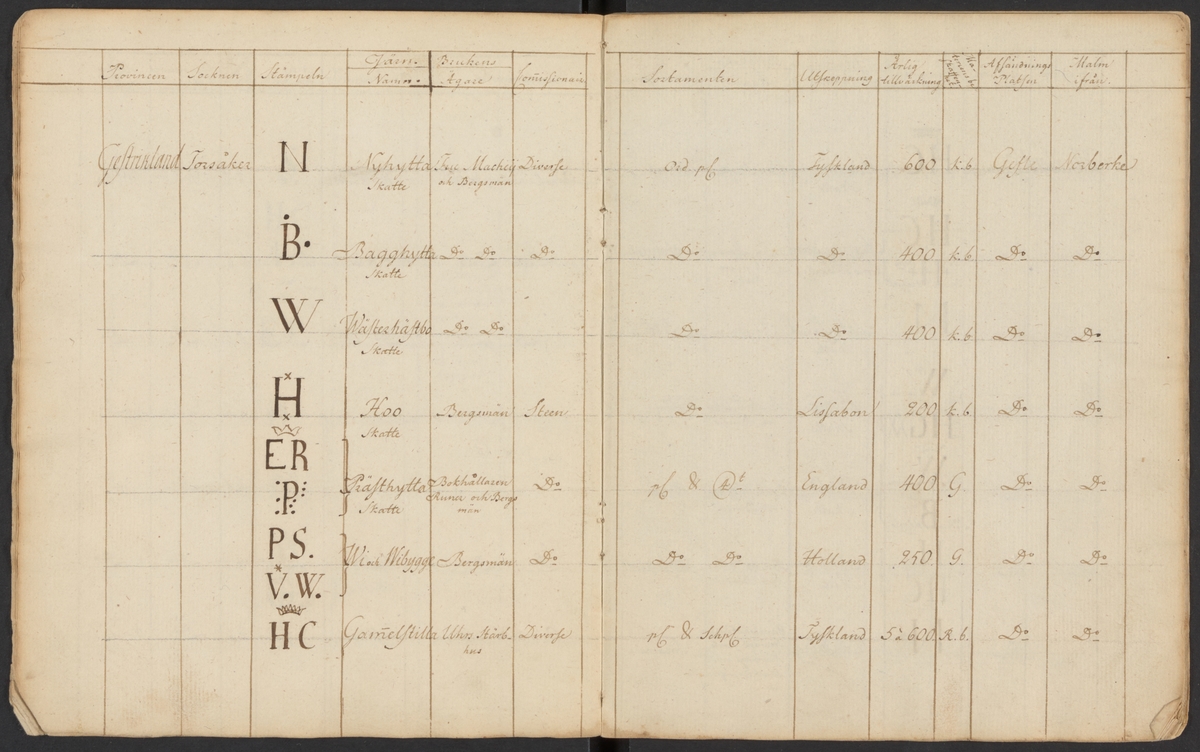 Provincen Socknen Stämpeln Järn. Namn. Brukens Ägare Commissionair Sortamenten Utskeppning Årlig tillvärkning Afsändnings Platsen Malm ifrån.
Gestrikland Torsåker N Nyhytta Mathey Diverse Ord. Tyskland 600 k.b Gefle Norberke
Skatte och Bergsmän
B. Bagghytta Do Do Do Do Do 400 k.b. Do Do
Skatte
W Wästerhästbo Do Do Do Do 400 k.b. Do Do
Skatte
H Hoo Bergsmän Steen Do Lissabon 200 k.b. Do Do
Skatte
ER
P. Prästhytta Bokhållaren Runer och Bergs män Do & England 400 G. Do Do
Skatte
PS.
V.W. Wi och Wibygge Bergsmän Do Do Do Holland 250. G. Do Do
HC Gam̄elstilla Uhrs Stärb-hus Diverse & Tyskland 5 à 600 R.b. Do Do